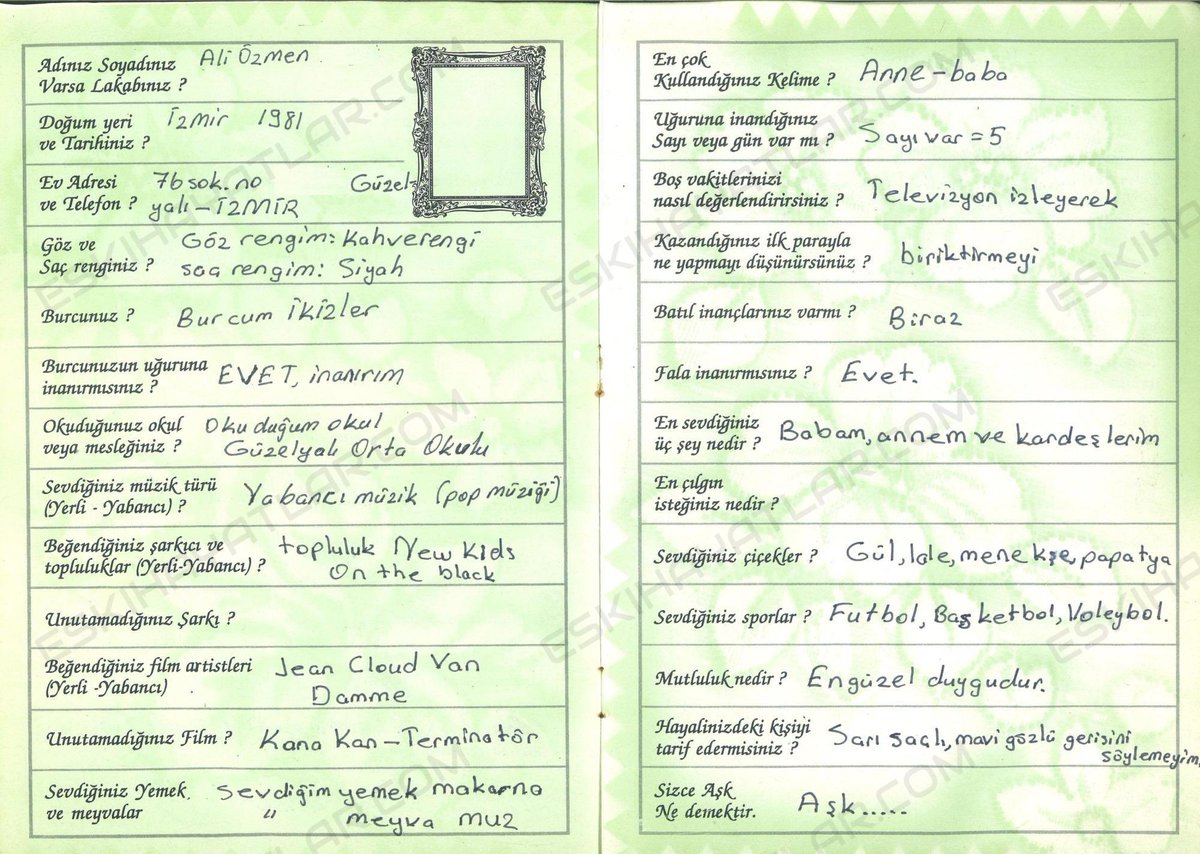 Adınız Soyadınız Ali Özmen
Varsa Lakabınız ?
Doğum yeri İzmir 1981
ve Tarihiniz ?
Ev Adresi 76 sok. no Güzel-
ve Telefon ? yalı - İZMİR
Göz ve Göz rengim: Kahverengi
Saç renginiz ? saç rengim: Siyah
Burcunuz ? Burcum İkizler
Burcunuzun uğuruna EVET, inanırım
inanırmısınız ?
Okuduğunuz okul Okuduğum okul
veya mesleğiniz ? Güzelyalı Orta Okulu
Sevdiğiniz müzik türü Yabancı müzik (pop müziği)
(Yerli - Yabancı) ?
Beğendiğiniz şarkıcı ve topluluk New Kids
topluluklar (Yerli-Yabancı) ? On the black
Unutamadığınız Şarkı ?
Beğendiğiniz film artistleri Jean Cloud Van
(Yerli -Yabancı) Damme
Unutamadığınız Film ? Kana Kan - Terminatör
Sevdiğiniz Yemek. sevdiğim yemek makarna
ve meyvalar " meyva muz
En çok
Kullandığınız Kelime ? Anne - baba
Uğuruna inandığınız
Sayı veya gün var mı ? Sayı var = 5
Boş vakitlerinizi
nasıl değerlendirirsiniz ? Televizyon izleyerek
Kazandığınız ilk parayla
ne yapmayı düşünürsünüz ? biriktirmeyi
Batıl inançlarınız varmı ? Biraz
Fala inanırmısınız ? Evet.
En sevdiğiniz
üç şey nedir ? Babam, annem ve kardeşlerim
En çılgın
isteğiniz nedir ?
Sevdiğiniz çiçekler ? Gül, lale, menekşe, papatya
Sevdiğiniz sporlar ? Futbol, Başketbol, Voleybol.
Mutluluk nedir ? En güzel duygudur.
Hayalinizdeki kişiyi Sarı saçlı, mavi gözlü gerisini
tarif edermisiniz ? söylemeyim.
Sizce Aşk
Ne demektir. Aşk.....
ESKIHATLAR.COM